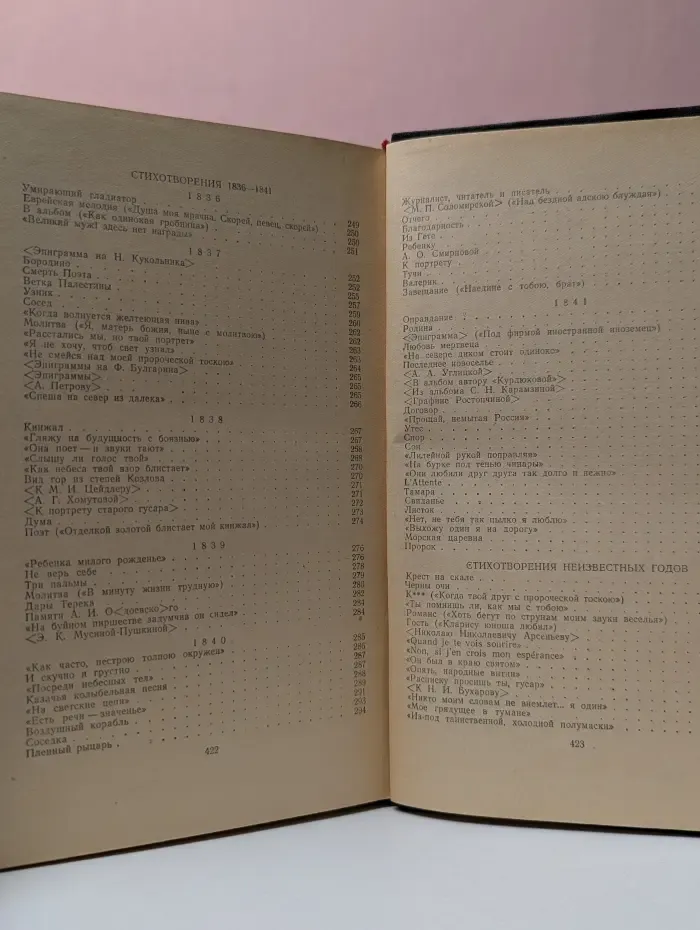 СТИХОТВОРЕНИЯ 1836—1841
1 8 3 6
Умирающий гладиатор 249
Еврейская мелодия («Душа моя мрачна. Скорей, певец, скорей!») 250
В альбом («Как одинокая гробница») 250
«Великий муж! Здесь нет награды» 251
1 8 3 7
<Эпиграмма на Н. Кукольника> 252
Бородино 252
Смерть Поэта 255
Ветка Палестины 257
Узник 259
Сосед 260
«Когда волнуется желтеющая нива» 262
Молитва («Я, матерь божия, ныне с молитвою») 262
«Расстались мы, но твой портрет» 263
«Я не хочу, чтоб свет узнал» 263
«Не смейся над моей пророческой тоскою» 264
<Эпиграммы на Ф. Булгарина> 265
<Эпиграммы> 265
<А. Петрову> 265
«Спеша на север из далека» 266
1 8 3 8
Кинжал 267
«Гляжу на будущность с боязнью» 267
«Она поет — и звуки тают» 268
«Слышу ли голос твой» 269
«Как небеса твой взор блистает» 270
Вид гор из степей Козлова 270
<К М. И. Цейдлеру> 271
<А. Г. Хомутовой> 271
<К портрету старого гусара> 272
Дума 273
Поэт («Отделкой золотой блистает мой кинжал») 274
1 8 3 9
«Ребенка милого рожденье» 276
Не верь себе 276
Три пальмы 278
Молитва («В минуту жизни трудную») 279
Дары Терека 280
Памяти А. И. О<доевско>го 282
«На буйном пиршестве задумчив он сидел» 284
<Э. К. Мусиной-Пушкиной> 284
1 8 4 0
«Как часто, пестрою толпою окружен» 285
И скучно и грустно 286
«Посреди небесных тел» 287
Казачья колыбельная песня 287
«На светские цепи» 288
«Есть речи — значенье» 289
Воздушный корабль 291
Соседка 293
Пленный рыцарь 294
422
Журналист, читатель и писатель
<М. П. Соломирской> («Над бездной адскою блуждая»)
Отчего
Благодарность
Из Гете
Ребенку
А. О. Смирновой
К портрету
Тучи
Валерик
Завещание («Наедине с тобою, брат»)
1 8 4 1
Оправдание
Родина
<Эпиграмма> («Под фирмой иностранной иноземец»)
Любовь мертвеца
«На севере диком стоит одиноко»
Последнее новоселье
<А. А. Углицкой>
<В альбом автору «Курдюковой»>
<Из альбома С. Н. Карамзиной>
<Графине Ростопчиной>
Договор
«Прощай, немытая Россия»
Утес
Спор
Сон
«Лилейной рукой поправляя»
«На бурке под тенью чинары»
«Они любили друг друга так долго и нежно»
L'Attente
Тамара
Свиданье
Листок
«Нет, не тебя так пылко я люблю»
«Выхожу один я на дорогу»
Морская царевна
Пророк
СТИХОТВОРЕНИЯ НЕИЗВЕСТНЫХ ГОДОВ
Крест на скале
Черны очи
К*** («Когда твой друг с пророческой тоскою»)
«Ты помнишь ли, как мы с тобою»
Романс («Хоть бегут по струнам моим звуки веселья»)
Гость («Кларису юноша любил»)
<Николаю Николаевичу Арсеньеву>
«Quand je te vois sourire»
«Non, si j'en crois mon espérance»
«Он был в краю святом»
«Опять, народные витии»
«Расписку просишь ты, гусар»
<К Н. И. Бухарову>
«Никто моим словам не внемлет... я один»
«Мое грядущее в тумане»
«Из-под таинственной, холодной полумаски»
423